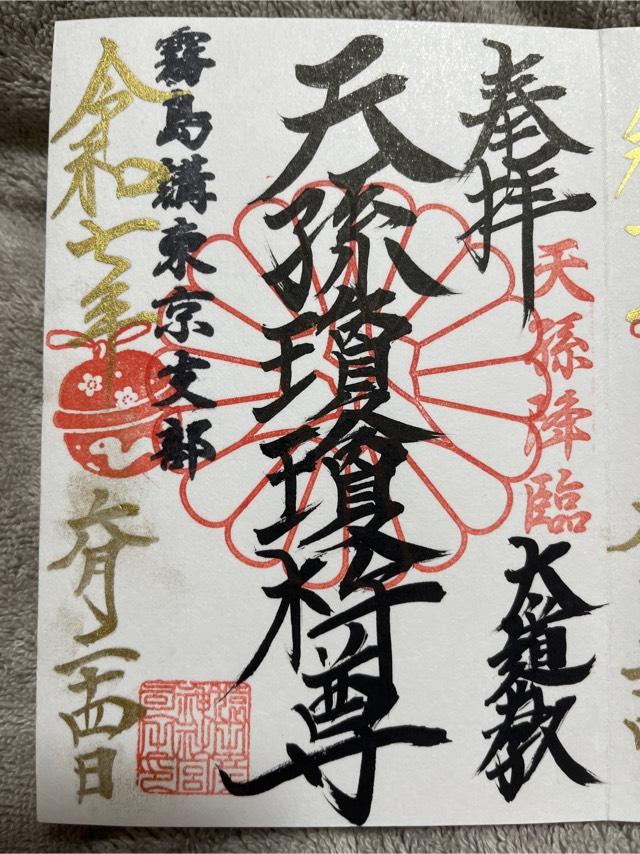 奉拝
天孫降臨
大道教
天孫瓊瓊杵尊
霧島講東京支部
令和七年
六月二十四日